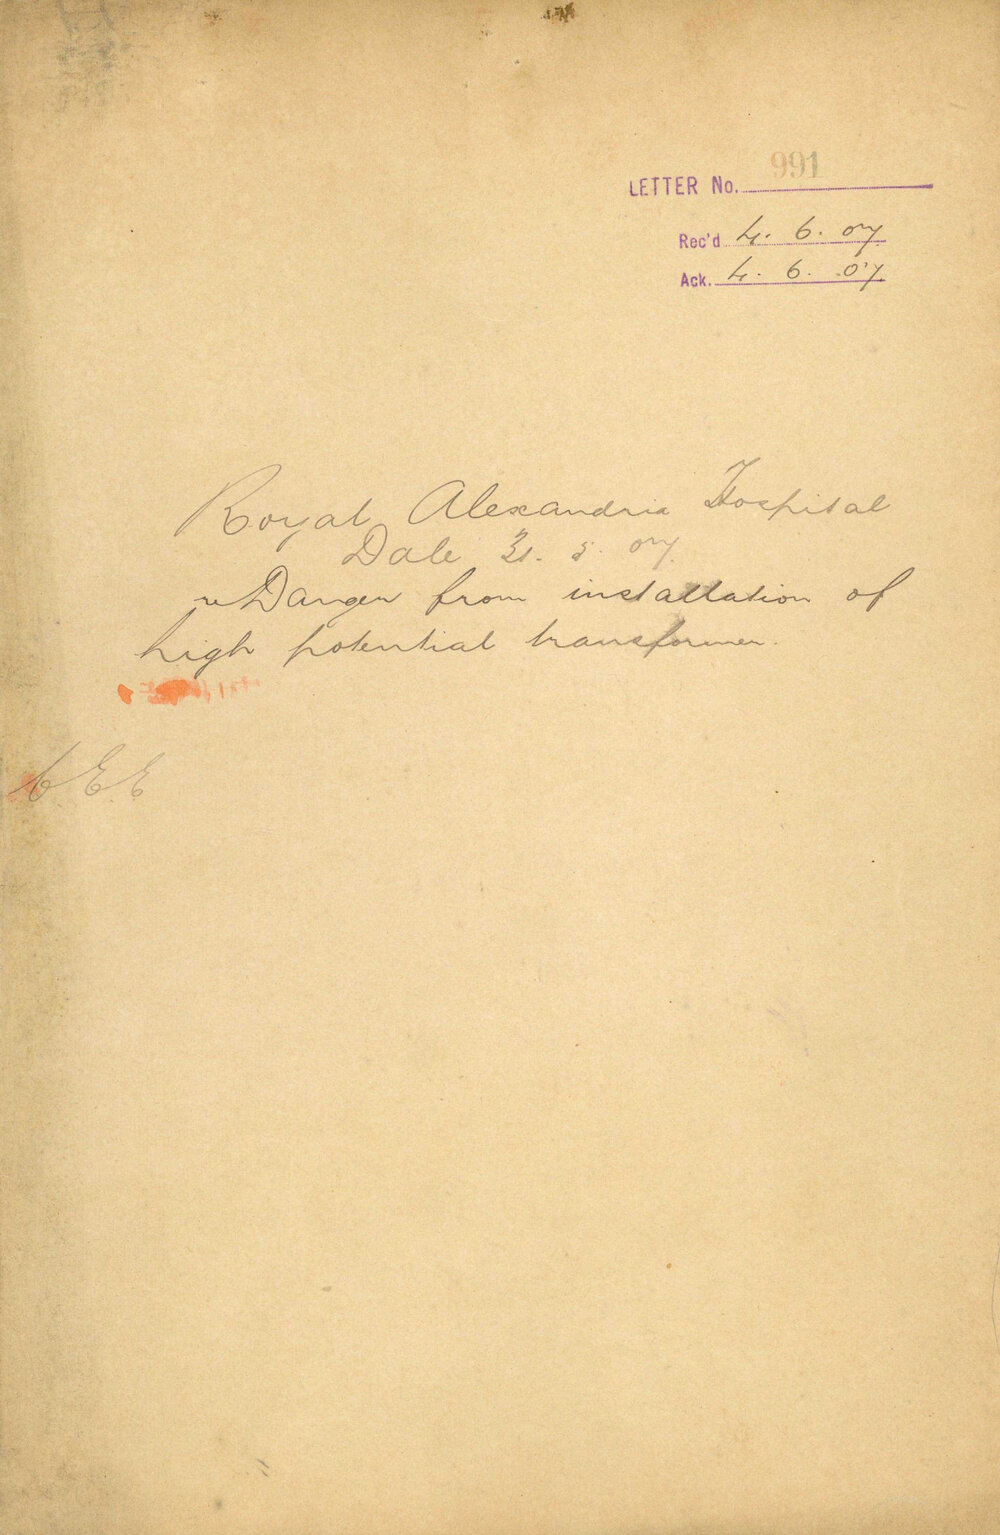 LETTER No. 991
Rec'd 4. 6. 07
Ack. 4. 6. 07
Royal Alexandria Hospital
Date 31. 5. 07
re Danger from installation of
high potential transformer.
CEE